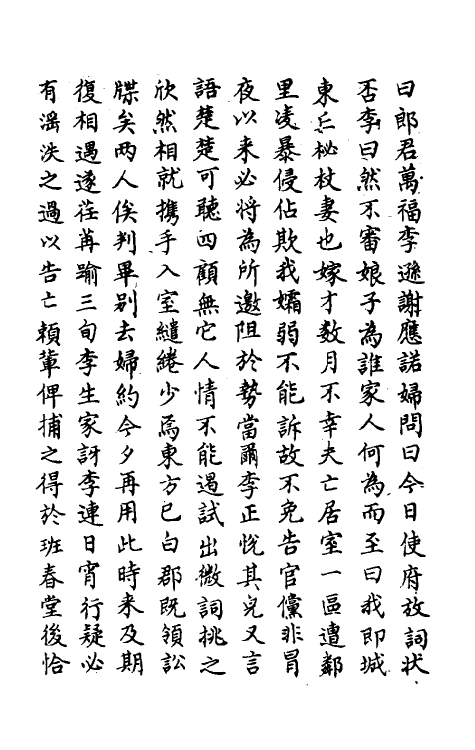 曰郎君萬福李遜謝應諾婦問曰今日使府放詞狀
否李曰然不審娘子為誰家人何為而至曰我即城
東丘柲杖妻也嫁才数月不幸夫亡居室一區遭鄰
里凌暴侵佔欺我孀弱不能訴故不免告官儻非冒
夜以来必將為所邀阻於勢當爾李正悅其皃又言
語楚楚可聽四顧無它人情不能遏試出微詞挑之
欣然相就攜手入室繾綣少焉東方已白郡既領訟
牒矣两人俟判畢别去婦約今夕再用此時来及期
復相遇遂荏苒踰三旬李生家訝李連日宵行疑必
有滛泆之過以告亡賴軰俾捕之得於班春堂後恰